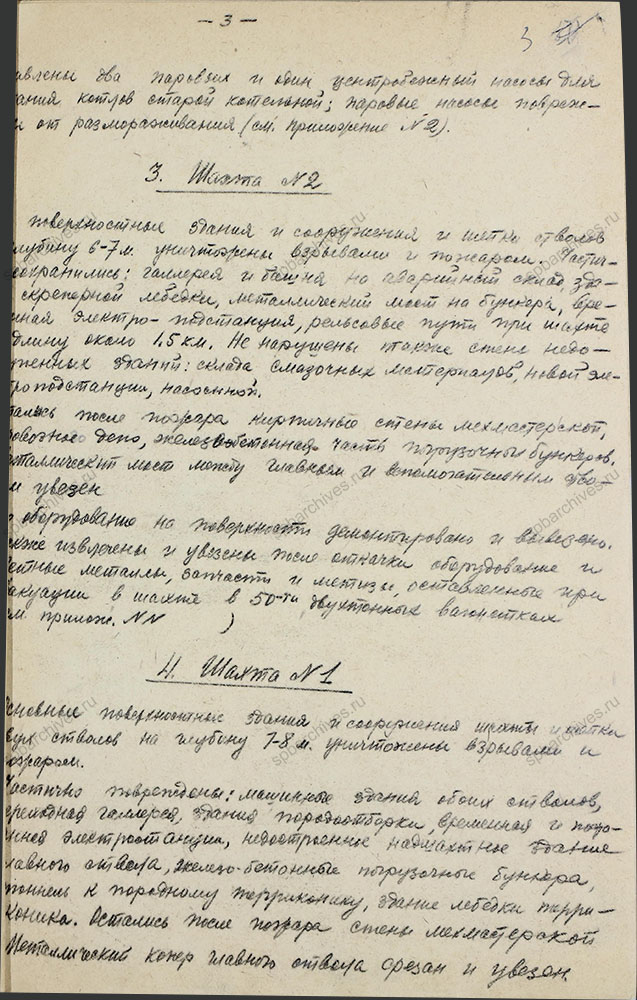 — 3 —
3
авлены два паровых и один центробежный насосы для
ания котлов старой котельной; паровые насосы повреж-
ы от размораживания (см. приложение №2).
3. Шахта №2
поверхностные здания и сооружения и шейки стволов
глубину 6-7 м. уничтожены взрывами и пожаром. Частич-
сохранились: галлерея и башня на аварийный склад, зда-
скреперной лебедки, металлический мост на бункера, вре-
нная электро-подстанция, рельсовые пути при шахте
длину около 1,5 км. Не нарушены также стены недо-
женных зданий: склада смазочных материалов, новой эле-
троподстанции, насосной.
тались после пожара кирпичные стены мехмастерской,
овозного депо, железобетонная часть погрузочных бункеров.
еталлический мост между главным и вспомогательным ство-
м увезен
оборудование на поверхности демонтировано и вывезено.
кже извлечены и увезены после откачки оборудование и
етные металлы, запчасти и метизы, оставленные при
вакуации в шахте в 50-ти двухтонных вагонетках
м прилож. NN )
4. Шахта №1
сновные поверхностные здания и сооружения шахты и шейки
вух стволов на глубину 7-8 м. уничтожены взрывами и
ожаром.
Частично повреждены: машинные здания обоих стволов,
ереходная галлерея, здания породоотборки, временная и
электростанции, недостроенное надшахтное здание
лавного ствола, железо-бетонные погрузочные бункера,
тоннель к породному террконику, здание лебедки терри-
коника. Остались после пожара стены мехмастерской
Металлический копер главного ствола срезан и увезен.
spbarchives.ru